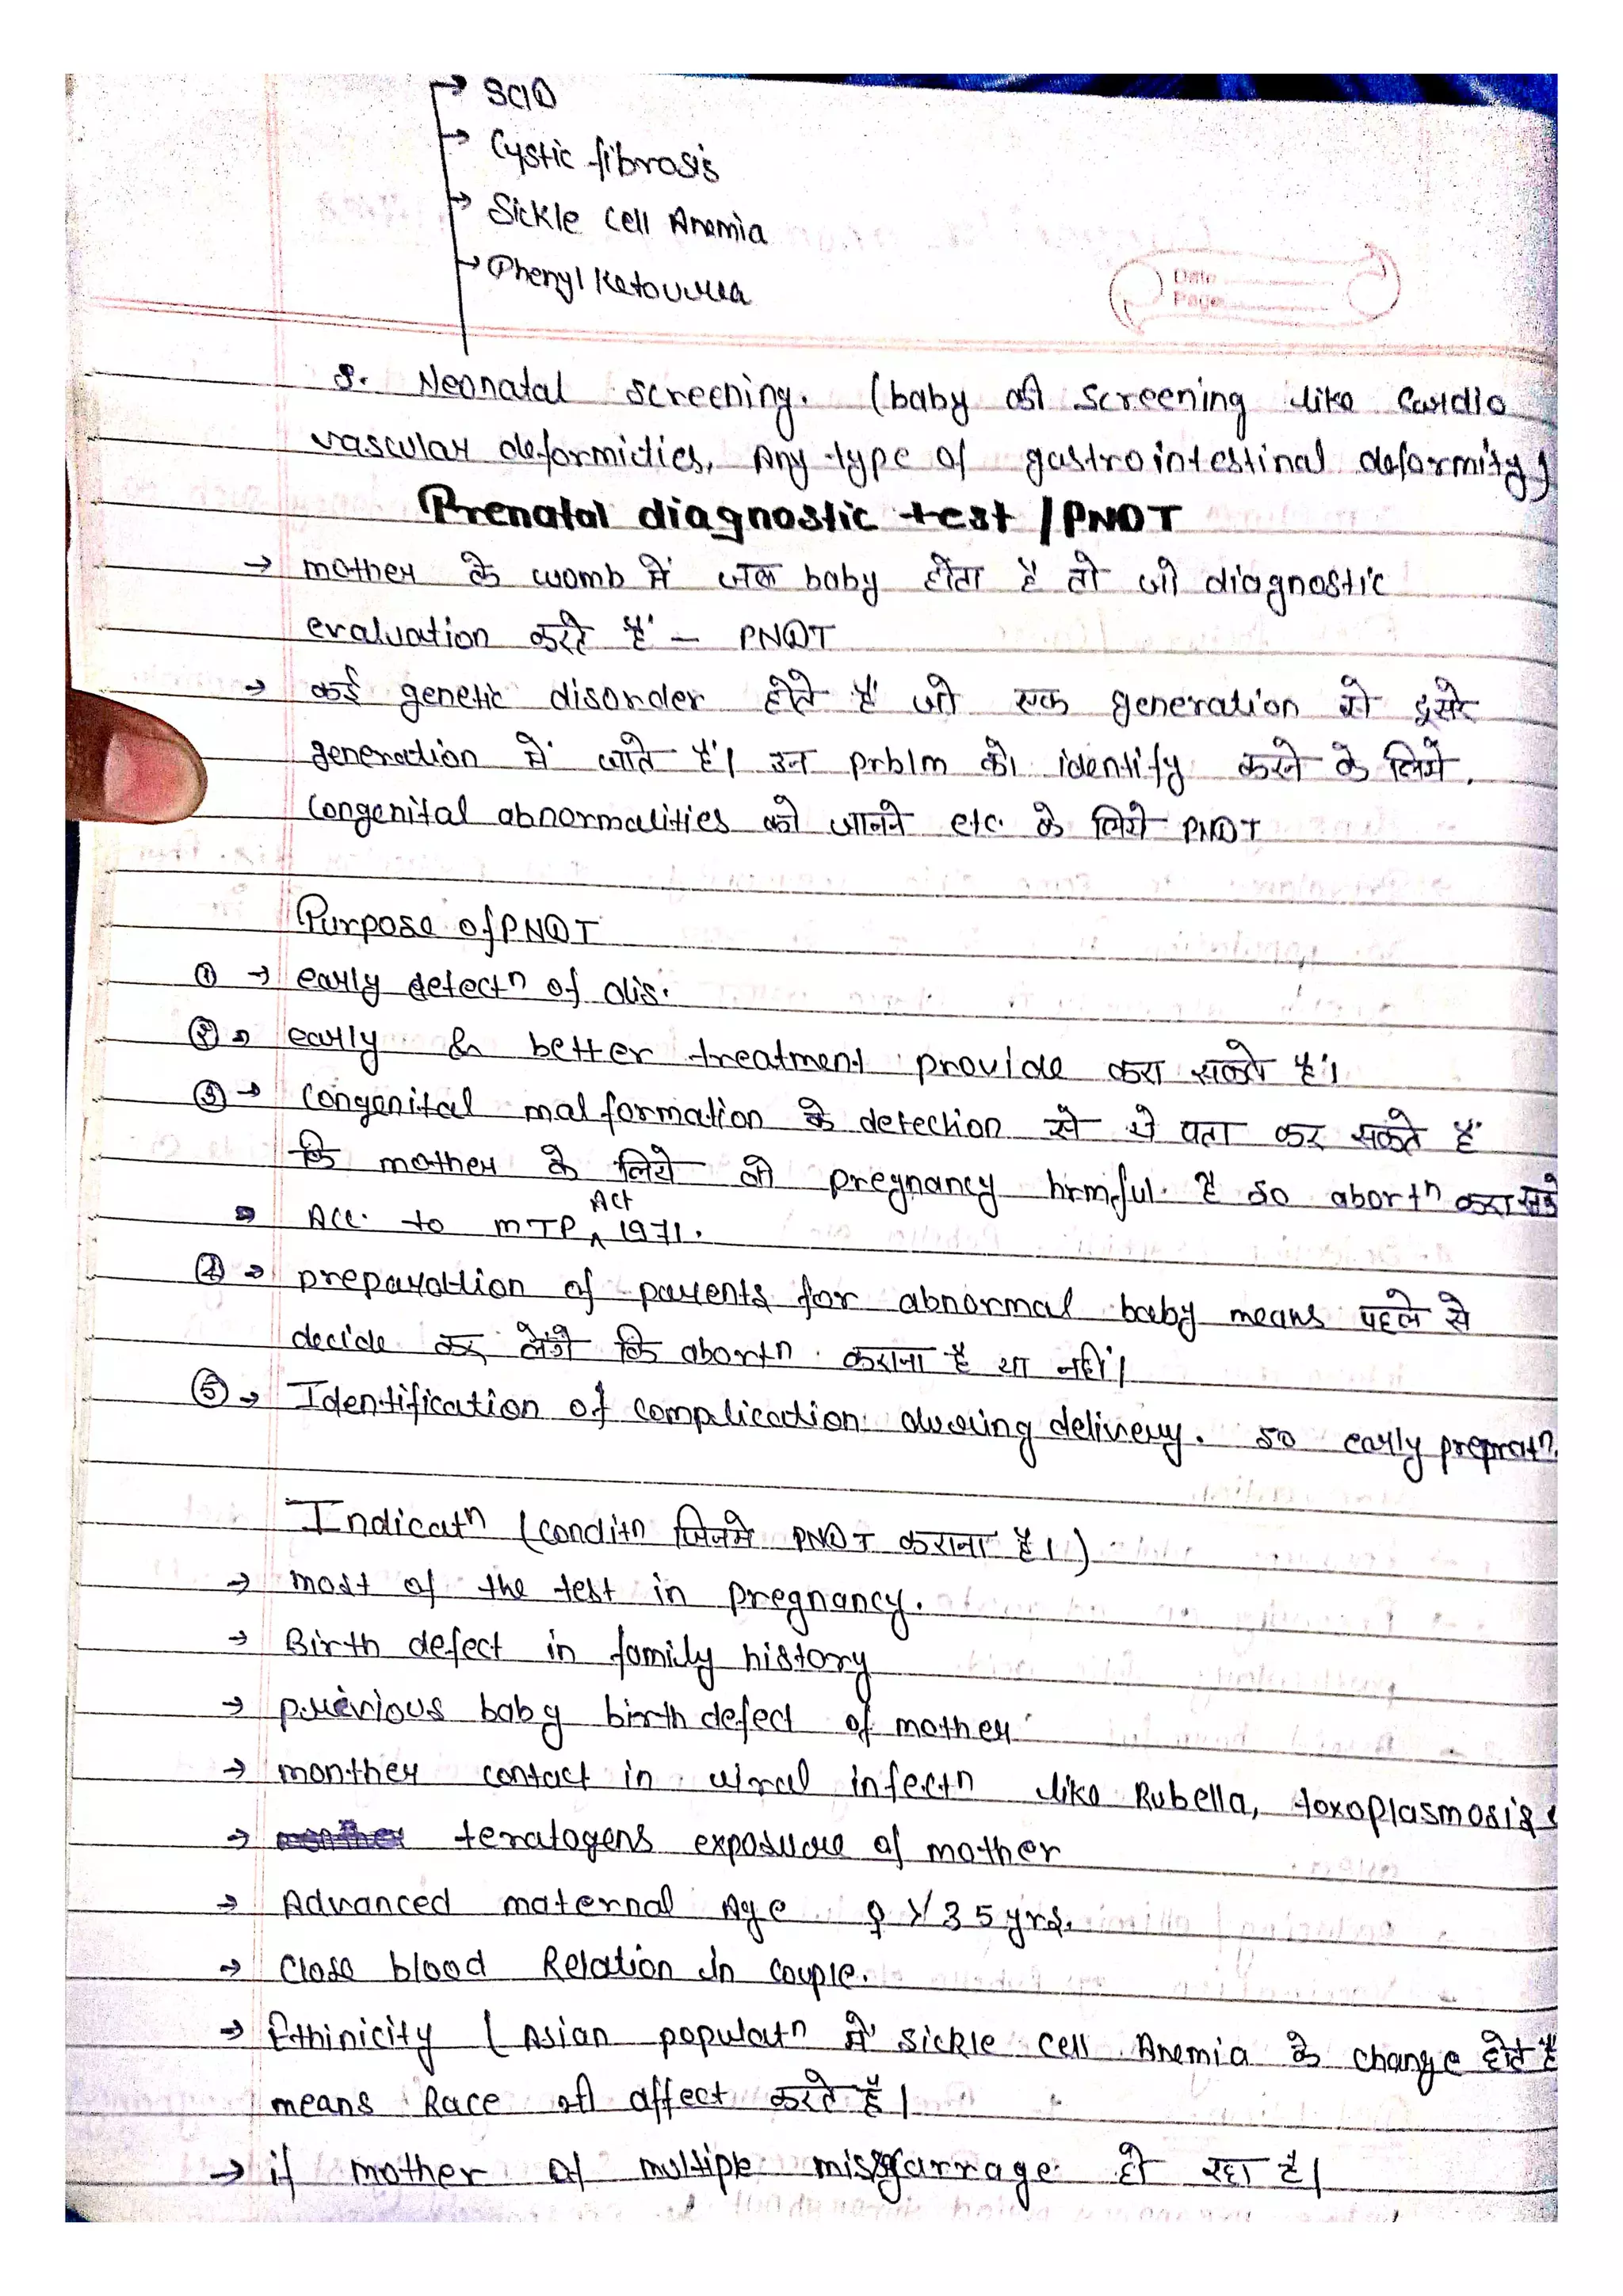 → SCID
→ Cystic fibrosis
→ Sickle cell Anemia
→ Phenyl Ketouria
Date
Page
8. Neonatal screening. (baby की screening like Cardio
vascular deformidies, Any type of gastrointestinal deformity)
Prenatal diagnostic test / PNDT
→ mother के womb में जब baby होता है तो जो diagnostic
evaluation करते हैं — PNDT
→ कई genetic disorder होते हैं जो एक generation से दूसरे
generation में जाते हैं। उन prblm को identify करने के लिये,
Congenital abnormalities को जानने etc. के लिये PNDT
Purpose of PNDT
① → early detectn of dis.
② → early & better treatment provide करा सकते हैं।
③ → Congenital malformation के detection से ये पता कर सकते हैं
कि mother के लिये जो pregnancy hrmful है so abortn करा सके
→ Acc. to MTP Act 1971.
④ → preparation of parents for abnormal baby means पहले से
decide कर लेंगे कि abortn कराना है या नहीं।
⑤ → Identification of complication during delivery. so early prepratn.
Indicatn (conditn जिनमे PNDT कराना है।)
→ most of the test in pregnancy.
→ Birth defect in family history
→ previous baby birth defect of mother
→ monther contact in viral infectn like Rubella, toxoplasmosis
→ teratogens exposure of mother
→ Advanced maternal Age ♀ ≥ 35 yrs.
→ Close blood Relation in couple.
→ Ethinicity ( Asian populatn में sickle cell Anemia के change होते है
means Race भी affect करते है।
→ if mother of multiple miscarrage हो रहा है।